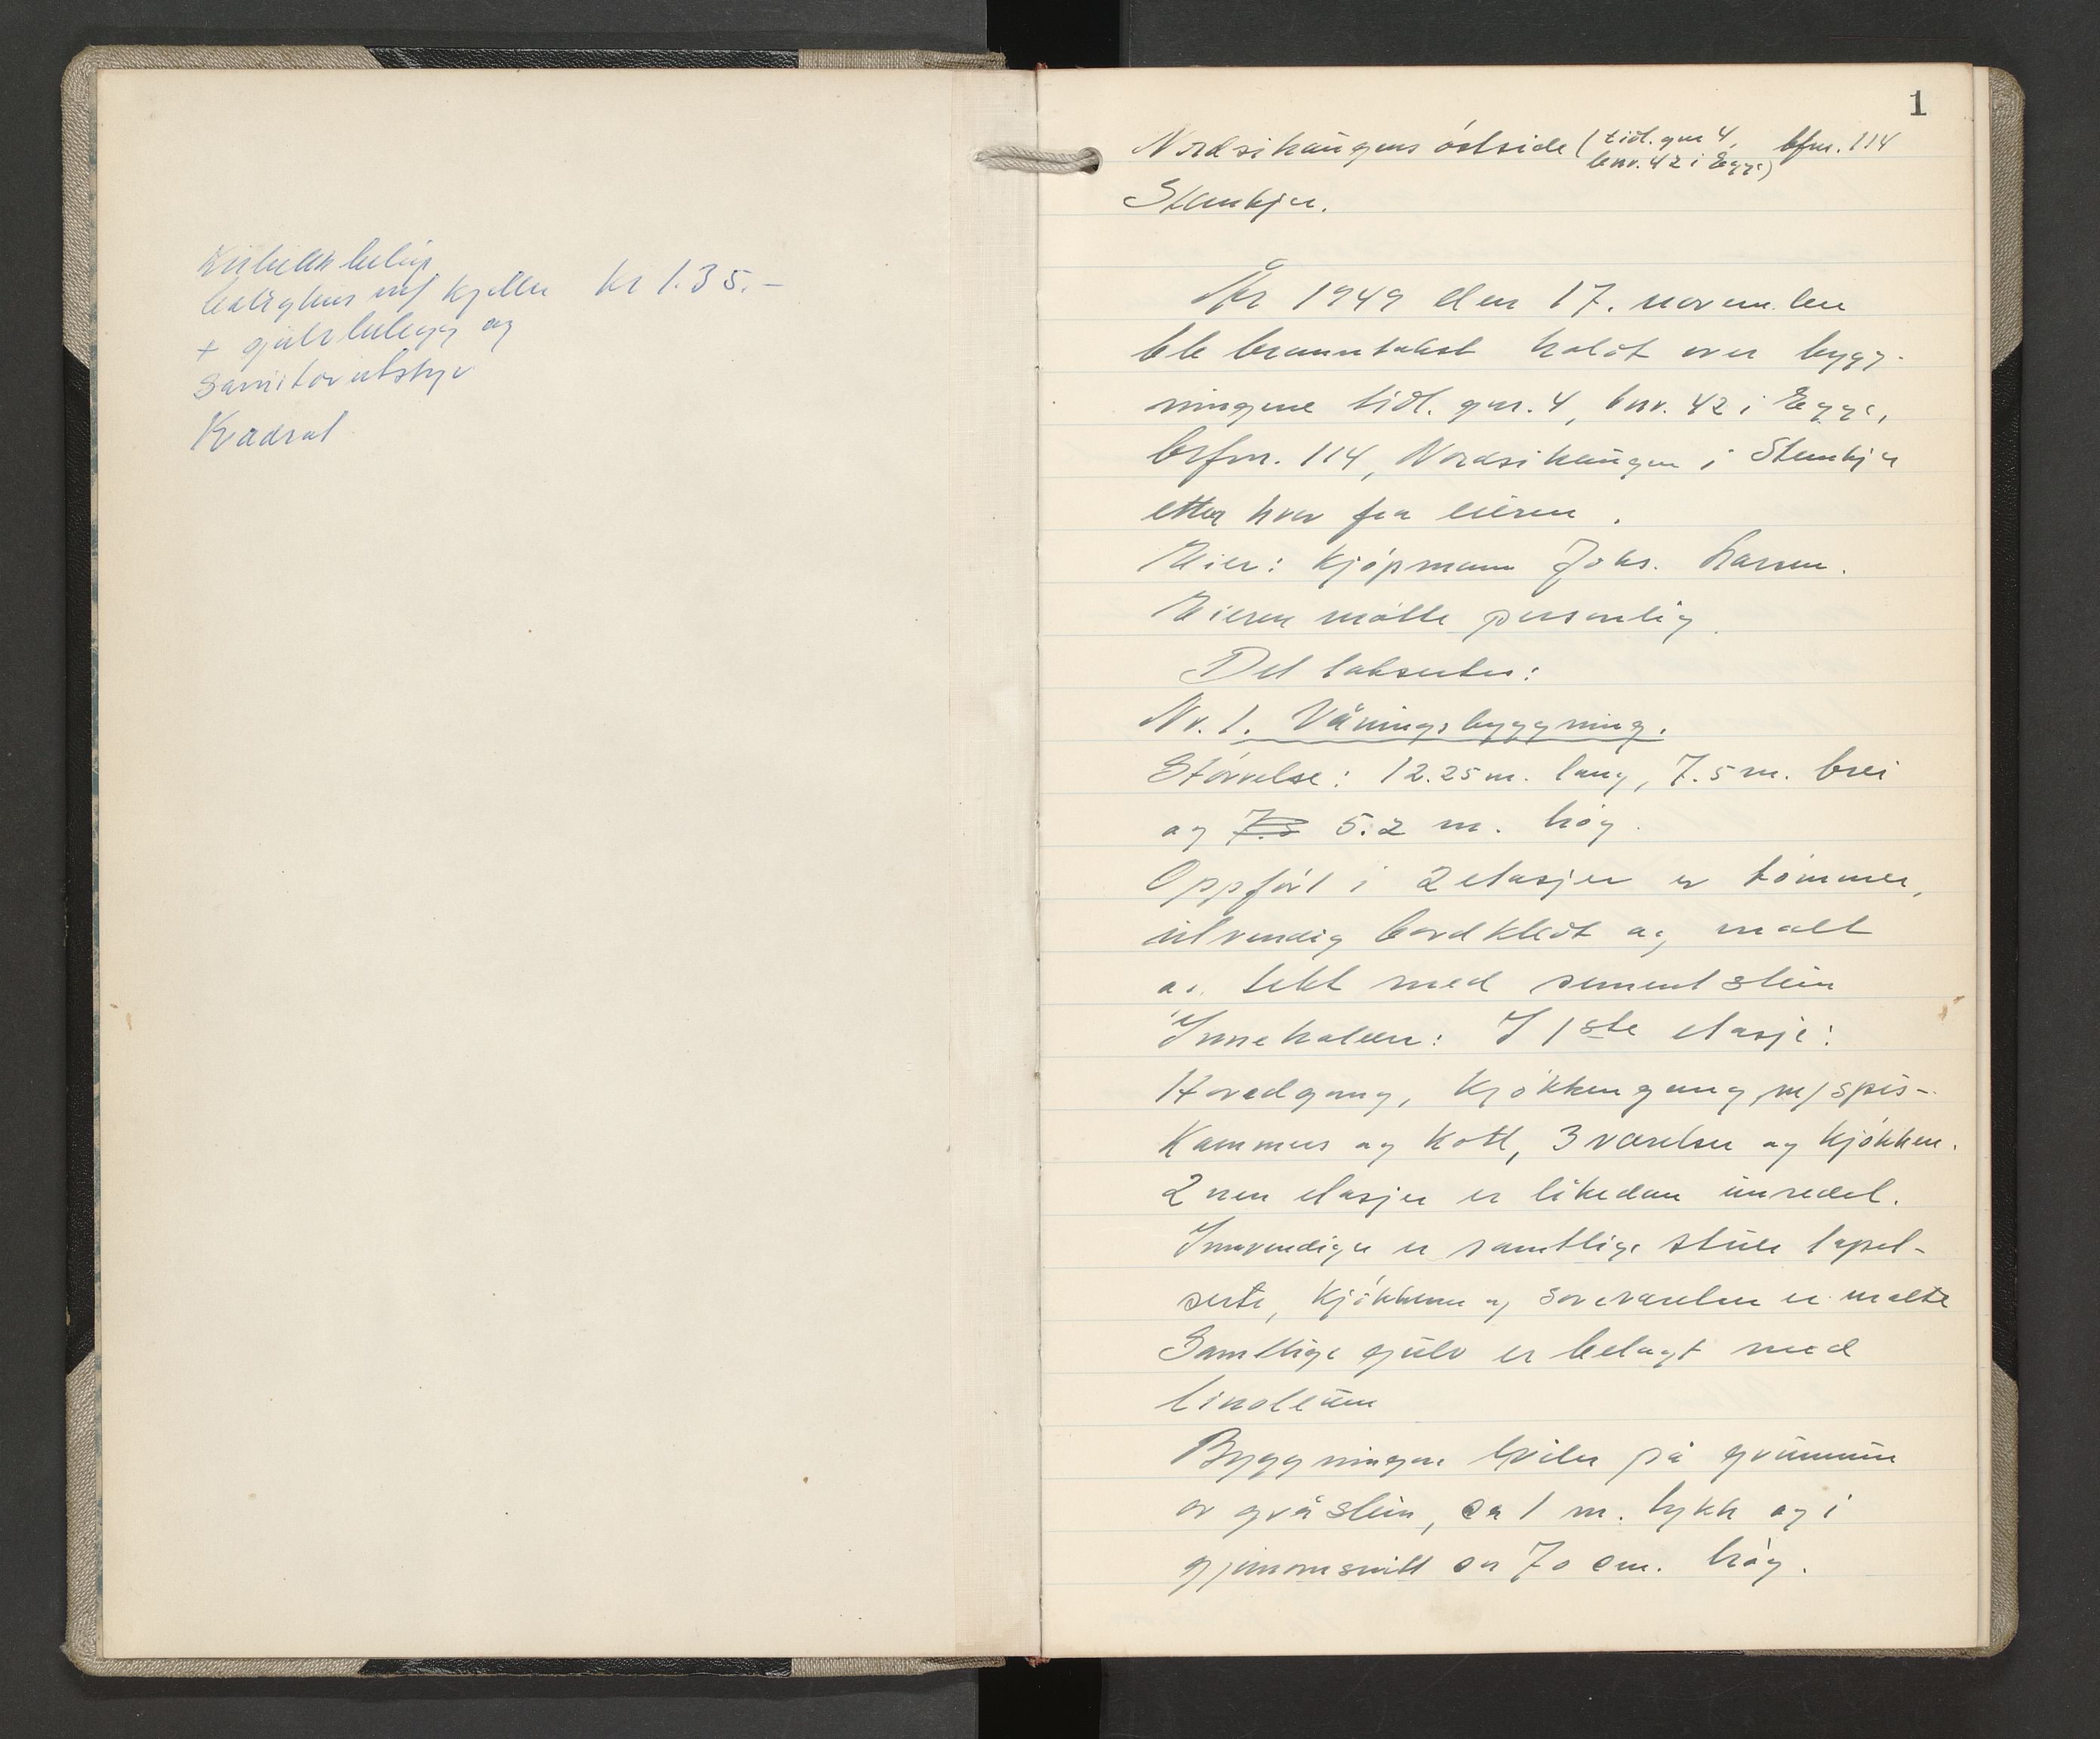 bolighus m/ kjeller kr 1.35.-
+ gulvbelegg og
Sanitærutstyr
Kvadrat
1
Nordsihaugens østside (tidl. gnr 4, bfnr. 114
bnr. 42 i Egge)
Steinkjer.
År 1949 den 17. november
ble branntakst holdt over bygg-
ningene tidl. gnr. 4, bnr. 42 i Egge,
brfnr. 114, Nordsihaugen i Steinkjer
etter krav fra eieren.
Eier: Kjøpmann Johs. Larsen.
Eieren møtte personlig.
Det takseres:
Nr. 1. Våningsbyggning.
Størrelse: 12.25 m. lang, 7.5 m. brei
og 7.5 5.2 m. høg.
Oppført i 2 etasjer av tømmer,
utvendig bordkledt og malt
og tekt med sementstein
Inneholder: I 1ste etasje:
Hovedgang, kjøkkengang m/spis-
kammers og kott, 3 værelser og kjøkken.
2nen etasje er likedan innredet.
Innvendige er samtlige stuer tapet-
serte, kjøkkene og soveværelser er malte
Samtlige gulv er belagt med
linoleum
Byggningen hviler på grunnmur
av gråstein, ca 1 m. tykk og i
gjennomsnitt ca 70 cm. høg.